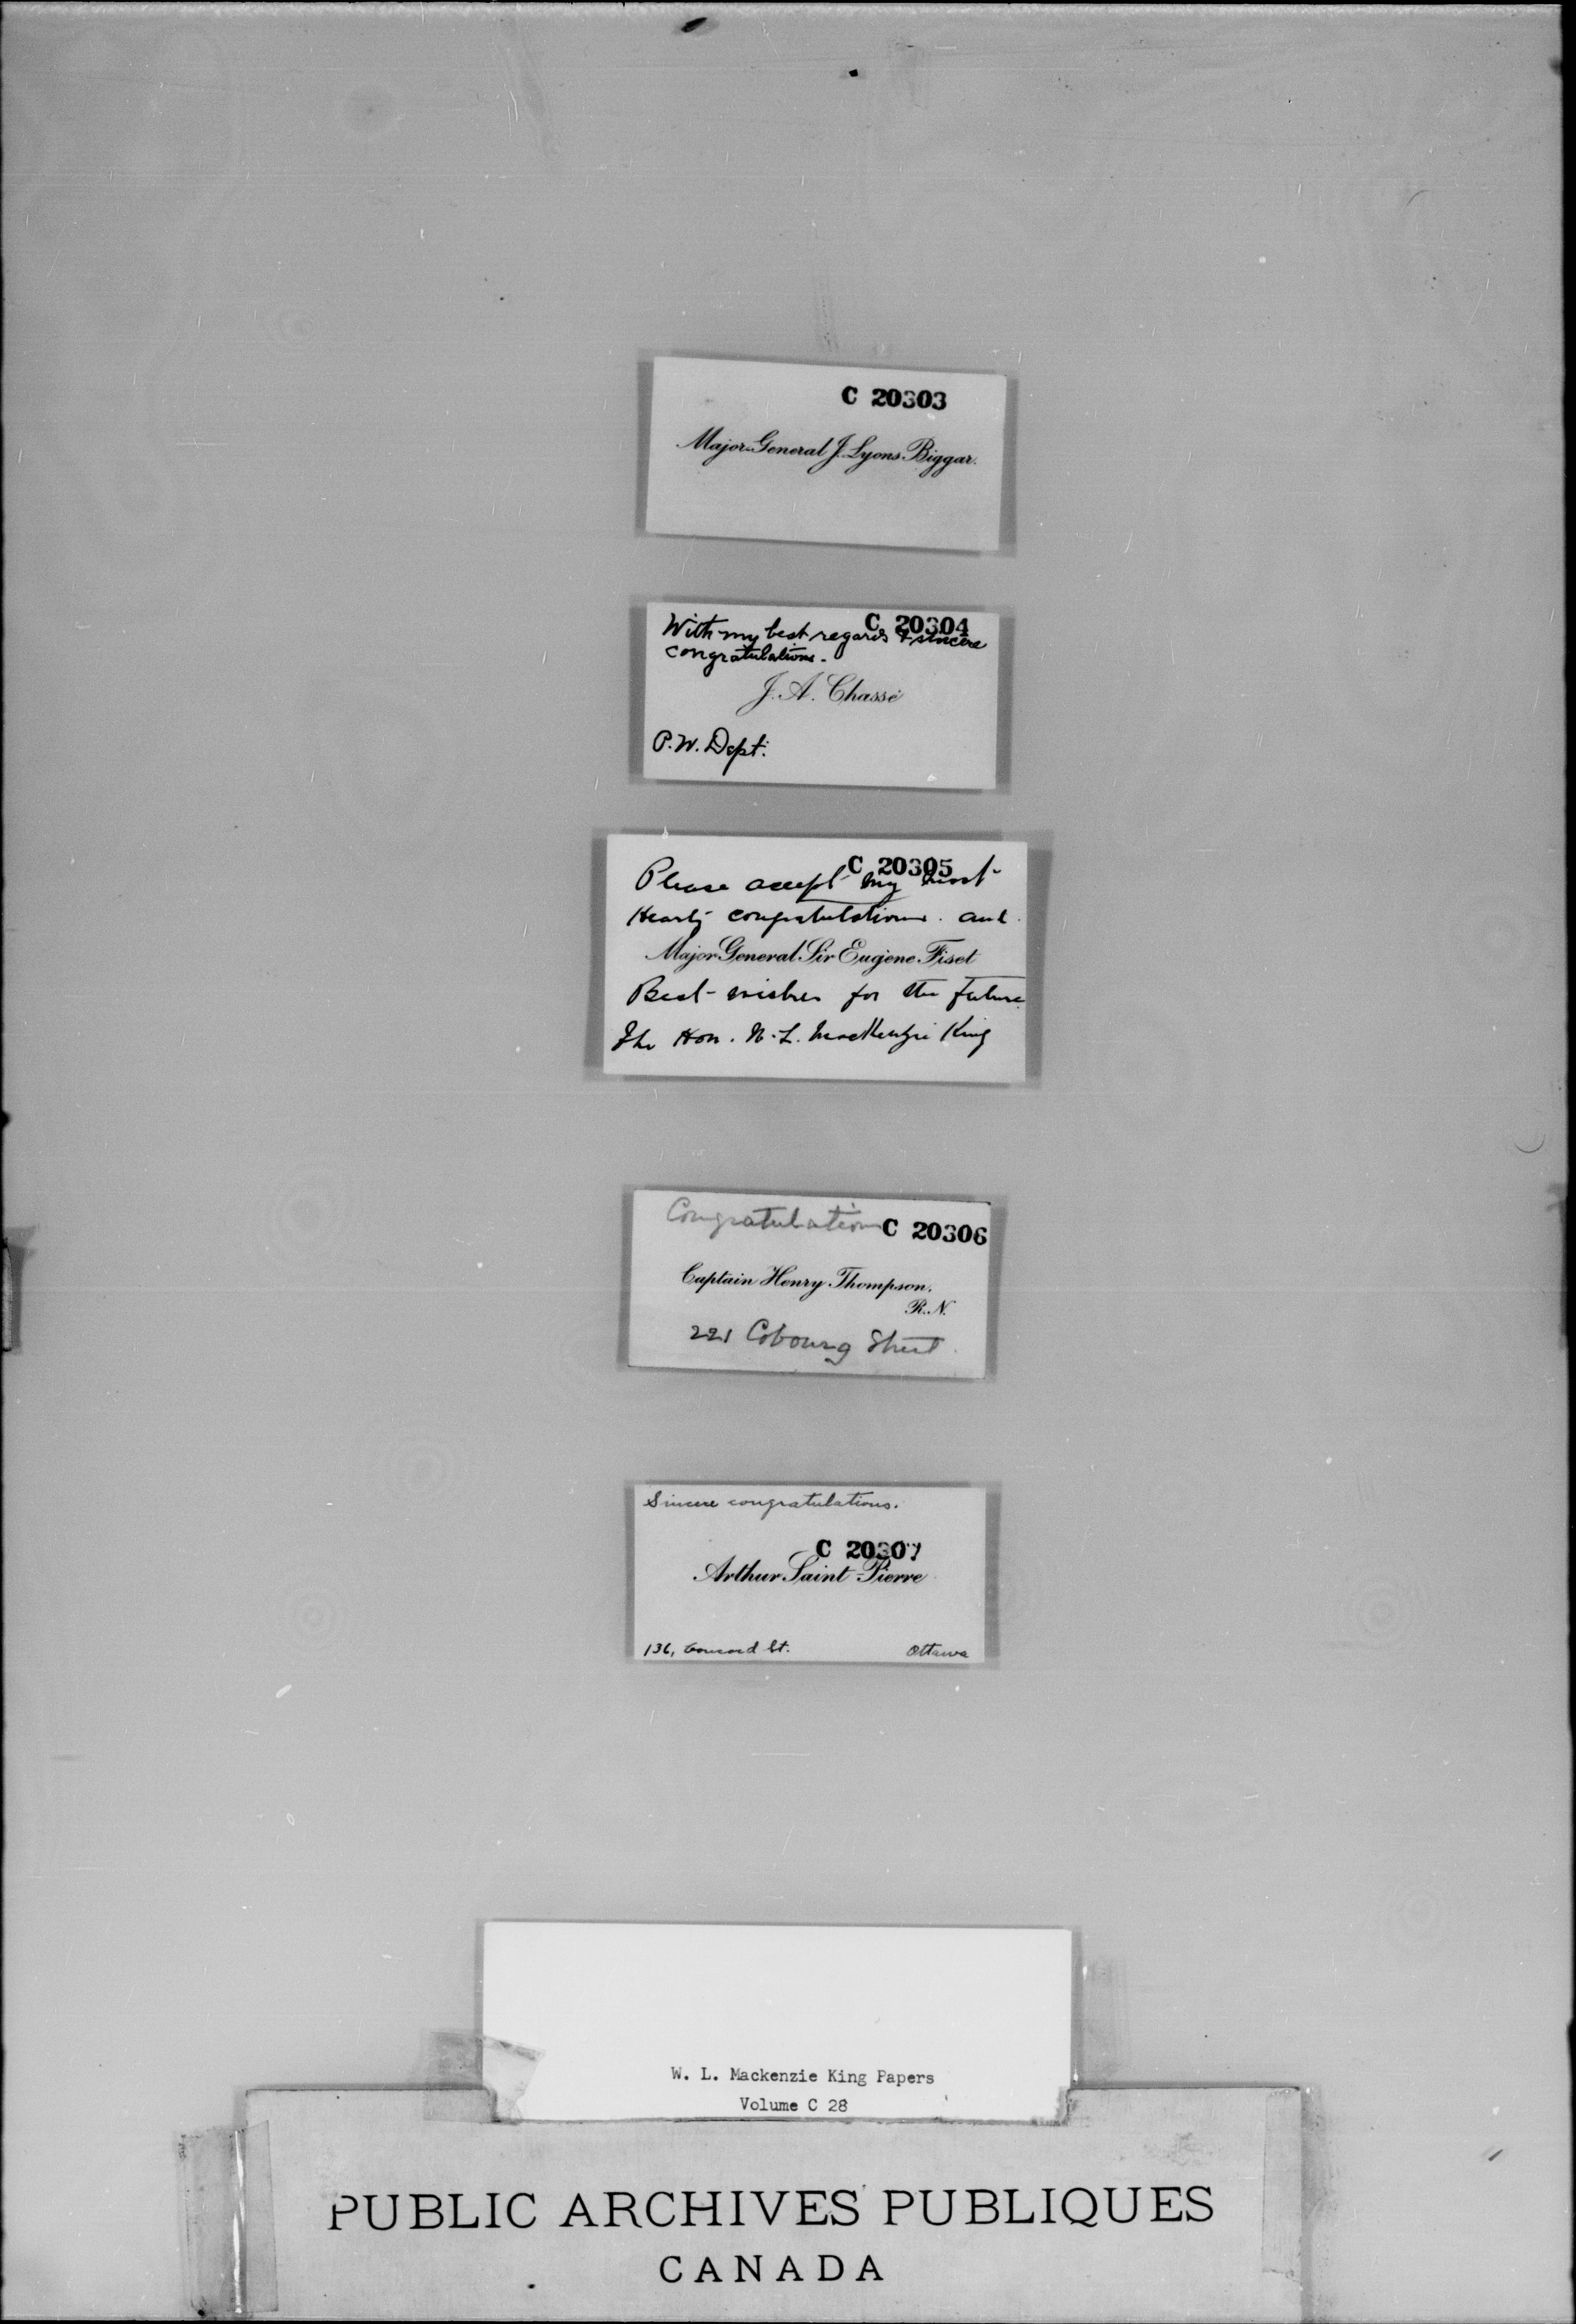 C 20303
Major-General J. Lyons Biggar.
C 20304
With my best regards & sincere
congratulations.
J. A. Chassé
P.W. Dept.
C 20305
Please accept my most
Hearty congratulations. and
Major General Sir Eugene Fiset
Best wishes for the future
The Hon. W. L. MacKenzie King
Congratulations C 20306
Captain Henry Thompson.
R.N.
221 Cobourg Street
Sincere congratulations.
C 20307
Arthur Saint-Pierre
136, Concord St. Ottawa
W. L. Mackenzie King Papers
Volume C 28
PUBLIC ARCHIVES PUBLIQUES
CANADA